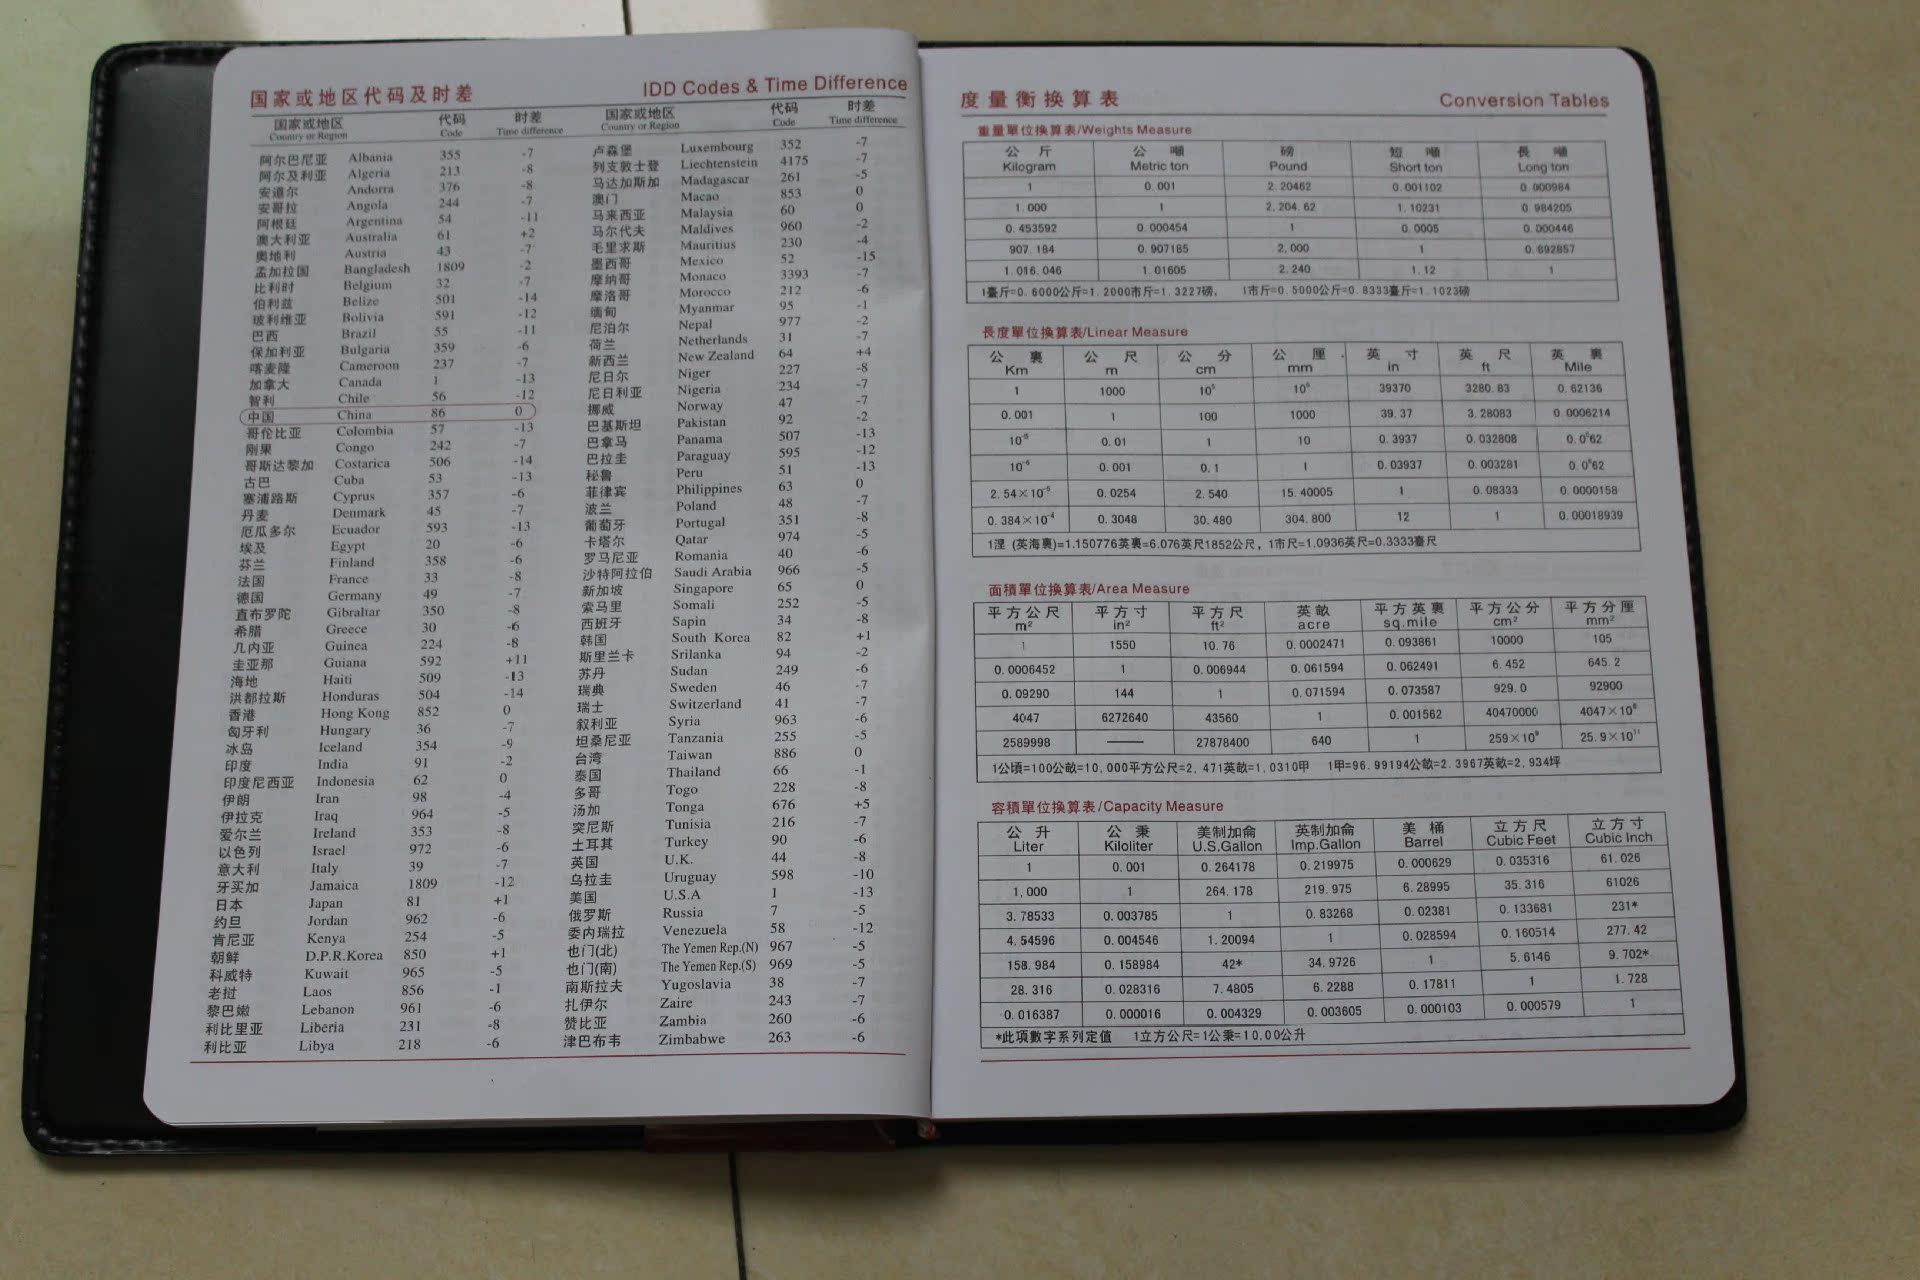 国家或地区代码及时差 IDD Codes & Time Difference
国家或地区 代码 时差 国家或地区 代码 时差
Country or Region Code Time difference Country or Region Code Time difference
阿尔巴尼亚 Albania 355 -7 卢森堡 Luxembourg 352 -7
阿尔及利亚 Algeria 213 -8 列支敦士登 Liechtenstein 4175 -7
安道尔 Andorra 376 -8 马达加斯加 Madagascar 261 -5
安哥拉 Angola 244 -7 澳门 Macao 853 0
阿根廷 Argentina 54 -11 马来西亚 Malaysia 60 0
澳大利亚 Australia 61 +2 马尔代夫 Maldives 960 -2
奥地利 Austria 43 -7 毛里求斯 Mauritius 230 -4
孟加拉国 Bangladesh 1809 -2 墨西哥 Mexico 52 -15
比利时 Belgium 32 -7 摩纳哥 Monaco 3393 -7
伯利兹 Belize 501 -14 摩洛哥 Morocco 212 -6
玻利维亚 Bolivia 591 -12 缅甸 Myanmar 95 -1
巴西 Brazil 55 -11 尼泊尔 Nepal 977 -2
保加利亚 Bulgaria 359 -6 荷兰 Netherlands 31 -7
喀麦隆 Cameroon 237 -7 新西兰 New Zealand 64 +4
加拿大 Canada 1 -13 尼日尔 Niger 227 -8
智利 Chile 56 -12 尼日利亚 Nigeria 234 -7
中国 China 86 0 挪威 Norway 47 -7
哥伦比亚 Colombia 57 -13 巴基斯坦 Pakistan 92 -2
刚果 Congo 242 -7 巴拿马 Panama 507 -13
哥斯达黎加 Costarica 506 -14 巴拉圭 Paraguay 595 -12
古巴 Cuba 53 -13 秘鲁 Peru 51 -13
塞浦路斯 Cyprus 357 -6 菲律宾 Philippines 63 0
丹麦 Denmark 45 -7 波兰 Poland 48 -7
厄瓜多尔 Ecuador 593 -13 葡萄牙 Portugal 351 -8
埃及 Egypt 20 -6 卡塔尔 Qatar 974 -5
芬兰 Finland 358 -6 罗马尼亚 Romania 40 -6
法国 France 33 -8 沙特阿拉伯 Saudi Arabia 966 -5
德国 Germany 49 -7 新加坡 Singapore 65 0
直布罗陀 Gibraltar 350 -8 索马里 Somali 252 -5
希腊 Greece 30 -6 西班牙 Sapin 34 -8
几内亚 Guinea 224 -8 韩国 South Korea 82 +1
圭亚那 Guiana 592 +11 斯里兰卡 Srilanka 94 -2
海地 Haiti 509 -13 苏丹 Sudan 249 -6
洪都拉斯 Honduras 504 -14 瑞典 Sweden 46 -7
香港 Hong Kong 852 0 瑞士 Switzerland 41 -7
匈牙利 Hungary 36 -7 叙利亚 Syria 963 -6
冰岛 Iceland 354 -9 坦桑尼亚 Tanzania 255 -5
印度 India 91 -2 台湾 Taiwan 886 0
印度尼西亚 Indonesia 62 0 泰国 Thailand 66 -1
伊朗 Iran 98 -4 多哥 Togo 228 -8
伊拉克 Iraq 964 -5 汤加 Tonga 676 +5
爱尔兰 Ireland 353 -8 突尼斯 Tunisia 216 -7
以色列 Israel 972 -6 土耳其 Turkey 90 -6
意大利 Italy 39 -7 英国 U.K. 44 -8
牙买加 Jamaica 1809 -12 乌拉圭 Uruguay 598 -10
日本 Japan 81 +1 美国 U.S.A 1 -13
约旦 Jordan 962 -6 俄罗斯 Russia 7 -5
肯尼亚 Kenya 254 -5 委内瑞拉 Venezuela 58 -12
朝鲜 D.P.R.Korea 850 +1 也门(北) The Yemen Rep.(N) 967 -5
科威特 Kuwait 965 -5 也门(南) The Yemen Rep.(S) 969 -5
老挝 Laos 856 -1 南斯拉夫 Yugoslavia 38 -7
黎巴嫩 Lebanon 961 -6 扎伊尔 Zaire 243 -7
利比里亚 Liberia 231 -8 赞比亚 Zambia 260 -6
利比亚 Libya 218 -6 津巴布韦 Zimbabwe 263 -6
度量衡換算表 Conversion Tables
重量單位換算表/Weights Measure
公斤 公噸 磅 短噸 長噸
Kilogram Metric ton Pound Short ton Long ton
1 0.001 2.20462 0.001102 0.000984
1.000 1 2,204.62 1.10231 0.984205
0.453592 0.000454 1 0.0005 0.000446
907.184 0.907185 2,000 1 0.892857
1.016.046 1.01605 2.240 1.12 1
1臺斤=0.6000公斤=1.2000市斤=1.3227磅, 1市斤=0.5000公斤=0.8333臺斤=1.1023磅
長度單位換算表/Linear Measure
公裏 公尺 公分 公厘 英寸 英尺 英裏
Km m cm mm in ft Mile
1 1000 10⁵ 10⁶ 39370 3280.83 0.62136
0.001 1 100 1000 39.37 3.28083 0.0006214
10⁻⁵ 0.01 1 10 0.3937 0.032808 0.0⁵62
10⁻⁶ 0.001 0.1 1 0.03937 0.003281 0.0⁶62
2.54×10⁻⁵ 0.0254 2.540 15.40005 1 0.08333 0.0000158
0.384×10⁻⁴ 0.3048 30.480 304.800 12 1 0.00018939
1浬 (英海裏)=1.150776英裏=6.076英尺1852公尺, 1市尺=1.0936英尺=0.3333臺尺
面積單位換算表/Area Measure
平方公尺 平方寸 平方尺 英畝 平方英裏 平方公分 平方分厘
m² in² ft² acre sq.mile cm² mm²
1 1550 10.76 0.0002471 0.093861 10000 105
0.0006452 1 0.006944 0.061594 0.062491 6.452 645.2
0.09290 144 1 0.071594 0.073587 929.0 92900
4047 6272640 43560 1 0.001562 40470000 4047×10⁶
2589998 —— 27878400 640 1 259×10⁹ 25.9×10¹¹
1公頃=100公畝=10,000平方公尺=2,471英畝=1,0310甲 1甲=96.99194公畝=2.3967英畝=2,934坪
容積單位換算表/Capacity Measure
公升 公秉 美制加侖 英制加侖 美桶 立方尺 立方寸
Liter Kiloliter U.S.Gallon Imp.Gallon Barrel Cubic Feet Cubic Inch
1 0.001 0.264178 0.219975 0.000629 0.035316 61.026
1,000 1 264.178 219.975 6.28995 35.316 61026
3.78533 0.003785 1 0.83268 0.02381 0.133681 231*
4.54596 0.004546 1.20094 1 0.028594 0.160514 277.42
158.984 0.158984 42* 34.9726 1 5.6146 9.702*
28.316 0.028316 7.4805 6.2288 0.17811 1 1.728
0.016387 0.000016 0.004329 0.003605 0.000103 0.000579 1
*此項數字系列定值 1立方公尺=1公秉=10.00公升